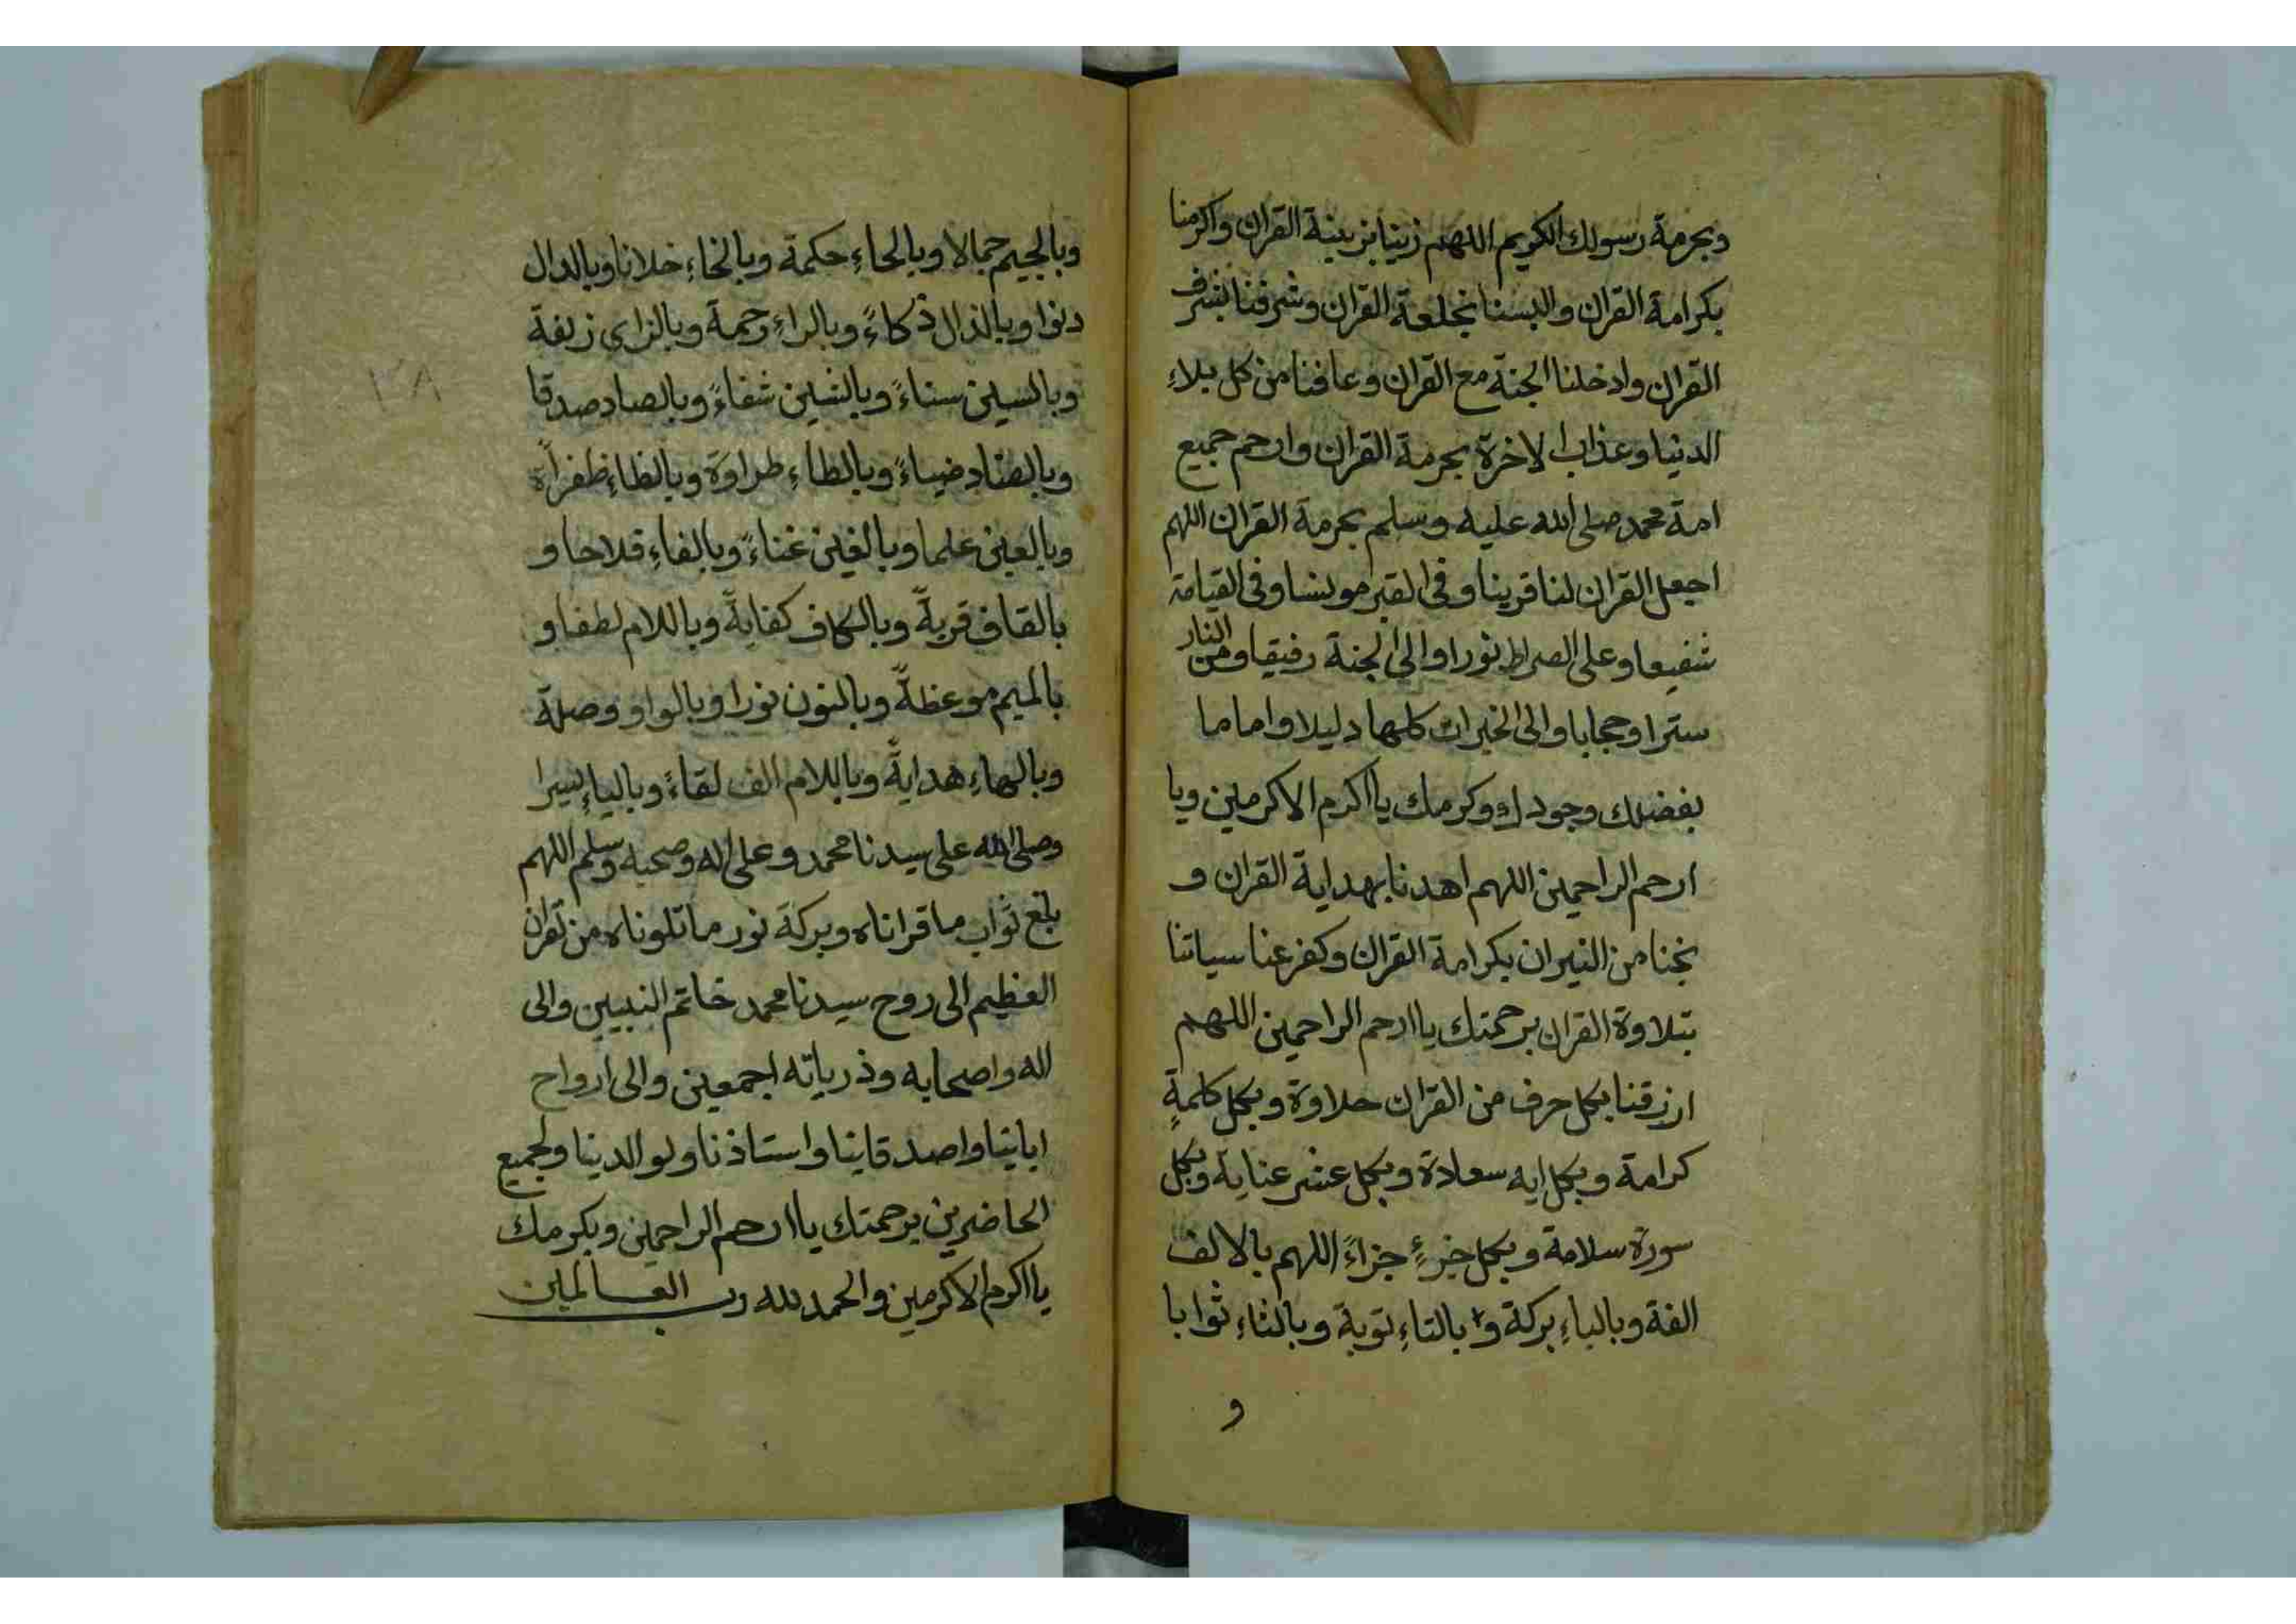 وبحرمة رسولك الكريم اللهم زينا بزينة القران واكرمنا
بكرامة القران والبسنا بخلعة القران وشرفنا بشرف
القران وادخلنا الجنة مع القران وعافنا من كل بلاءِ
الدنيا وعذاب الاخرة بحرمة القران وارحم جميع
امة محمد صلى الله عليه وسلم بحرمة القران اللهم
اجعل القران لنا قرينا وفى القبر مونسا وفى القيامة
شفيعا وعلى الصراط نورا والى الجنة رفيقا ومن النار
سترا وحجابا والى الخيرات كلها دليلا واماما
بفضلك وجودك وكرمك يا اكرم الاكرمين ويا
ارحم الراحمين اللهم اهدنا بهداية القران و
نجنا من النيران بكرامة القران وكفر عنا سياتنا
بتلاوة القران برحمتك يا ارحم الراحمين اللهم
ارزقنا بكل حرف من القران حلاوة وبكل كلمةٍ
كرامة وبكل ايه سعادة وبكل عشر عناية وبكل
سورة سلامة وبكل جزءٍ جزاءً اللهم بالالف
الفة وبالباءِ بركة و بالتاءِ توبة وبالثاءِ ثوابا
و
وبالجيم جمالا وبالحاءِ حكمة وبالخاءِ خلانا وبالدال
دنوا وبالذال ذكاءً وبالراءِ رحمة وبالزاى زلفة
وبالسين سناءً وبالشين شفاءً وبالصاد صدقا
وبالضاد ضياءً وبالطاءِ طراوة وبالظاءِ ظفراً
وبالعين علما وبالغين غناءً وبالفاءِ فلاحا و
بالقاف قربةً وبالكاف كفايةً وباللام لطفا و
بالميم موعظةً وبالنون نورا وبالواو وصلة
وبالهاءِ هدايةً وباللام الف لقاءً وبالياءِ يسرا
وصلى الله على سيدنا محمد وعلى اله وصحبه وسلم اللهم
بلغ ثواب ما قراناه وبركة نور ما تلوناه من القران
العظيم الى روح سيدنا محمد خاتم النبيين والى
اله واصحابه وذرياته اجمعين والى ارواح
اباينا واصدقاينا واستاذنا ولوالدينا ولجميع
الحاضرين برحمتك يا ارحم الراحمين وبكرمك
يا اكرم الاكرمين والحمد لله رب العالمين